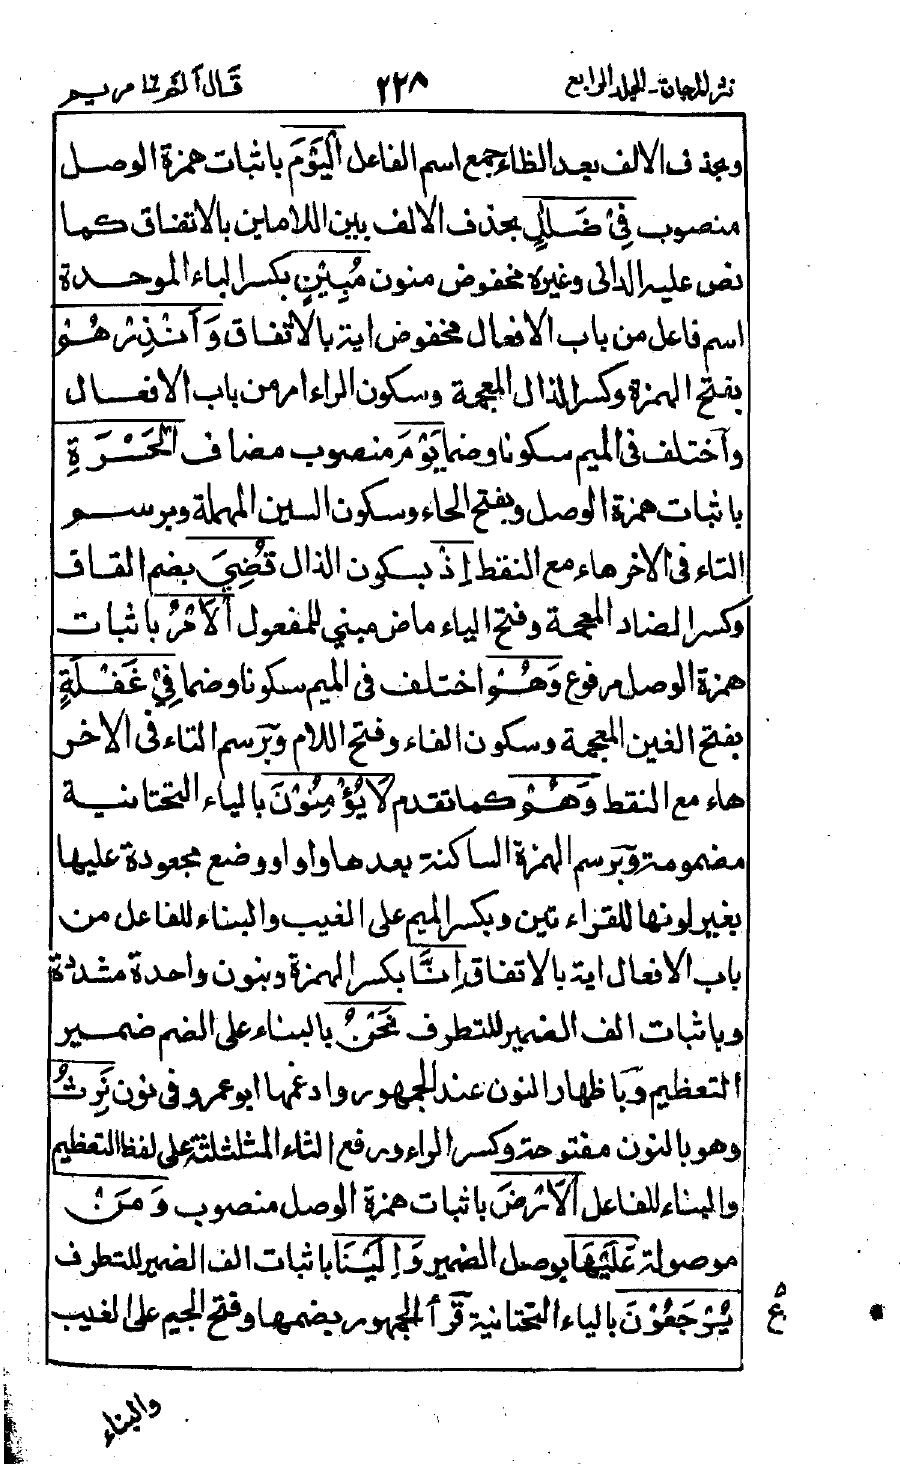 نثر المرجان - المجلد الرابع ٢٢٨ قال ألم ١٦ مريم
وبحذف الالف بعد الظاء جمع اسم الفاعل اَلْيَوْمَ باثبات همزة الوصل
منصوب فِىْ ضَلٰلٍ بحذف الالف بين اللامين بالاتفاق كما
نص عليه الدانى وغيره مخفوض منون مُبِيْنٍ بكسر الباء الموحدة
اسم فاعل من باب الافعال مخفوض اية بالاتفاق وَاَنْذِرْهُمْ
بفتح الهمزة وكسر الذال المعجمة وسكون الراء امر من باب الافعال
واختلف فى الميم سكونا وضما يَوْمَ منصوب مضاف الْحَسْرَةِ
باثبات همزة الوصل وبفتح الحاء وسكون السين المهملة وبرسم
التاء فى الاخر هاء مع النقط اِذْ بسكون الذال قُضِىَ بضم القاف
وكسر الضاد المعجمة وفتح الياء ماض مبني للمفعول اَلْاَمْرُ باثبات
همزة الوصل مرفوع وَهُمْ اختلف فى الميم سكونا وضما فِىْ غَفْلَةٍ
بفتح الغين المعجمة وسكون الفاء وفتح اللام وبرسم التاء فى الاخر
هاء مع النقط وَهُمْ كما تقدم لَا يُؤْمِنُوْنَ بالياء التحتانية
مضمومة وبرسم الهمزة الساكنة بعدها واوا ووضع مجعودة عليها
بغير لونها للقراءتين وبكسر الميم على الغيب والبناء للفاعل من
باب الافعال اية بالاتفاق اِنَّا بكسر الهمزة وبنون واحدة مشددة
وباثبات الف الضمير للتطرف نَحْنُ بالبناء على الضم ضمير
التعظيم وباظهار النون عند الجمهور وادغمها ابو عمرو فى نون نَرِثُ
وهو بالنون مفتوحة وكسر الراء ورفع الثاء المثلثة على لفظ التعظيم
والبناء للفاعل اَلْاَرْضَ باثبات همزة الوصل منصوب وَمَنْ
موصولة عَلَيْهَا بوصل الضمير وَاِلَيْنَا باثبات الف الضمير للتطرف
يُرْجَعُوْنَ بالياء التحتانية قرأ الجمهور بضمها وفتح الجيم على الغيب
ع
والبناء